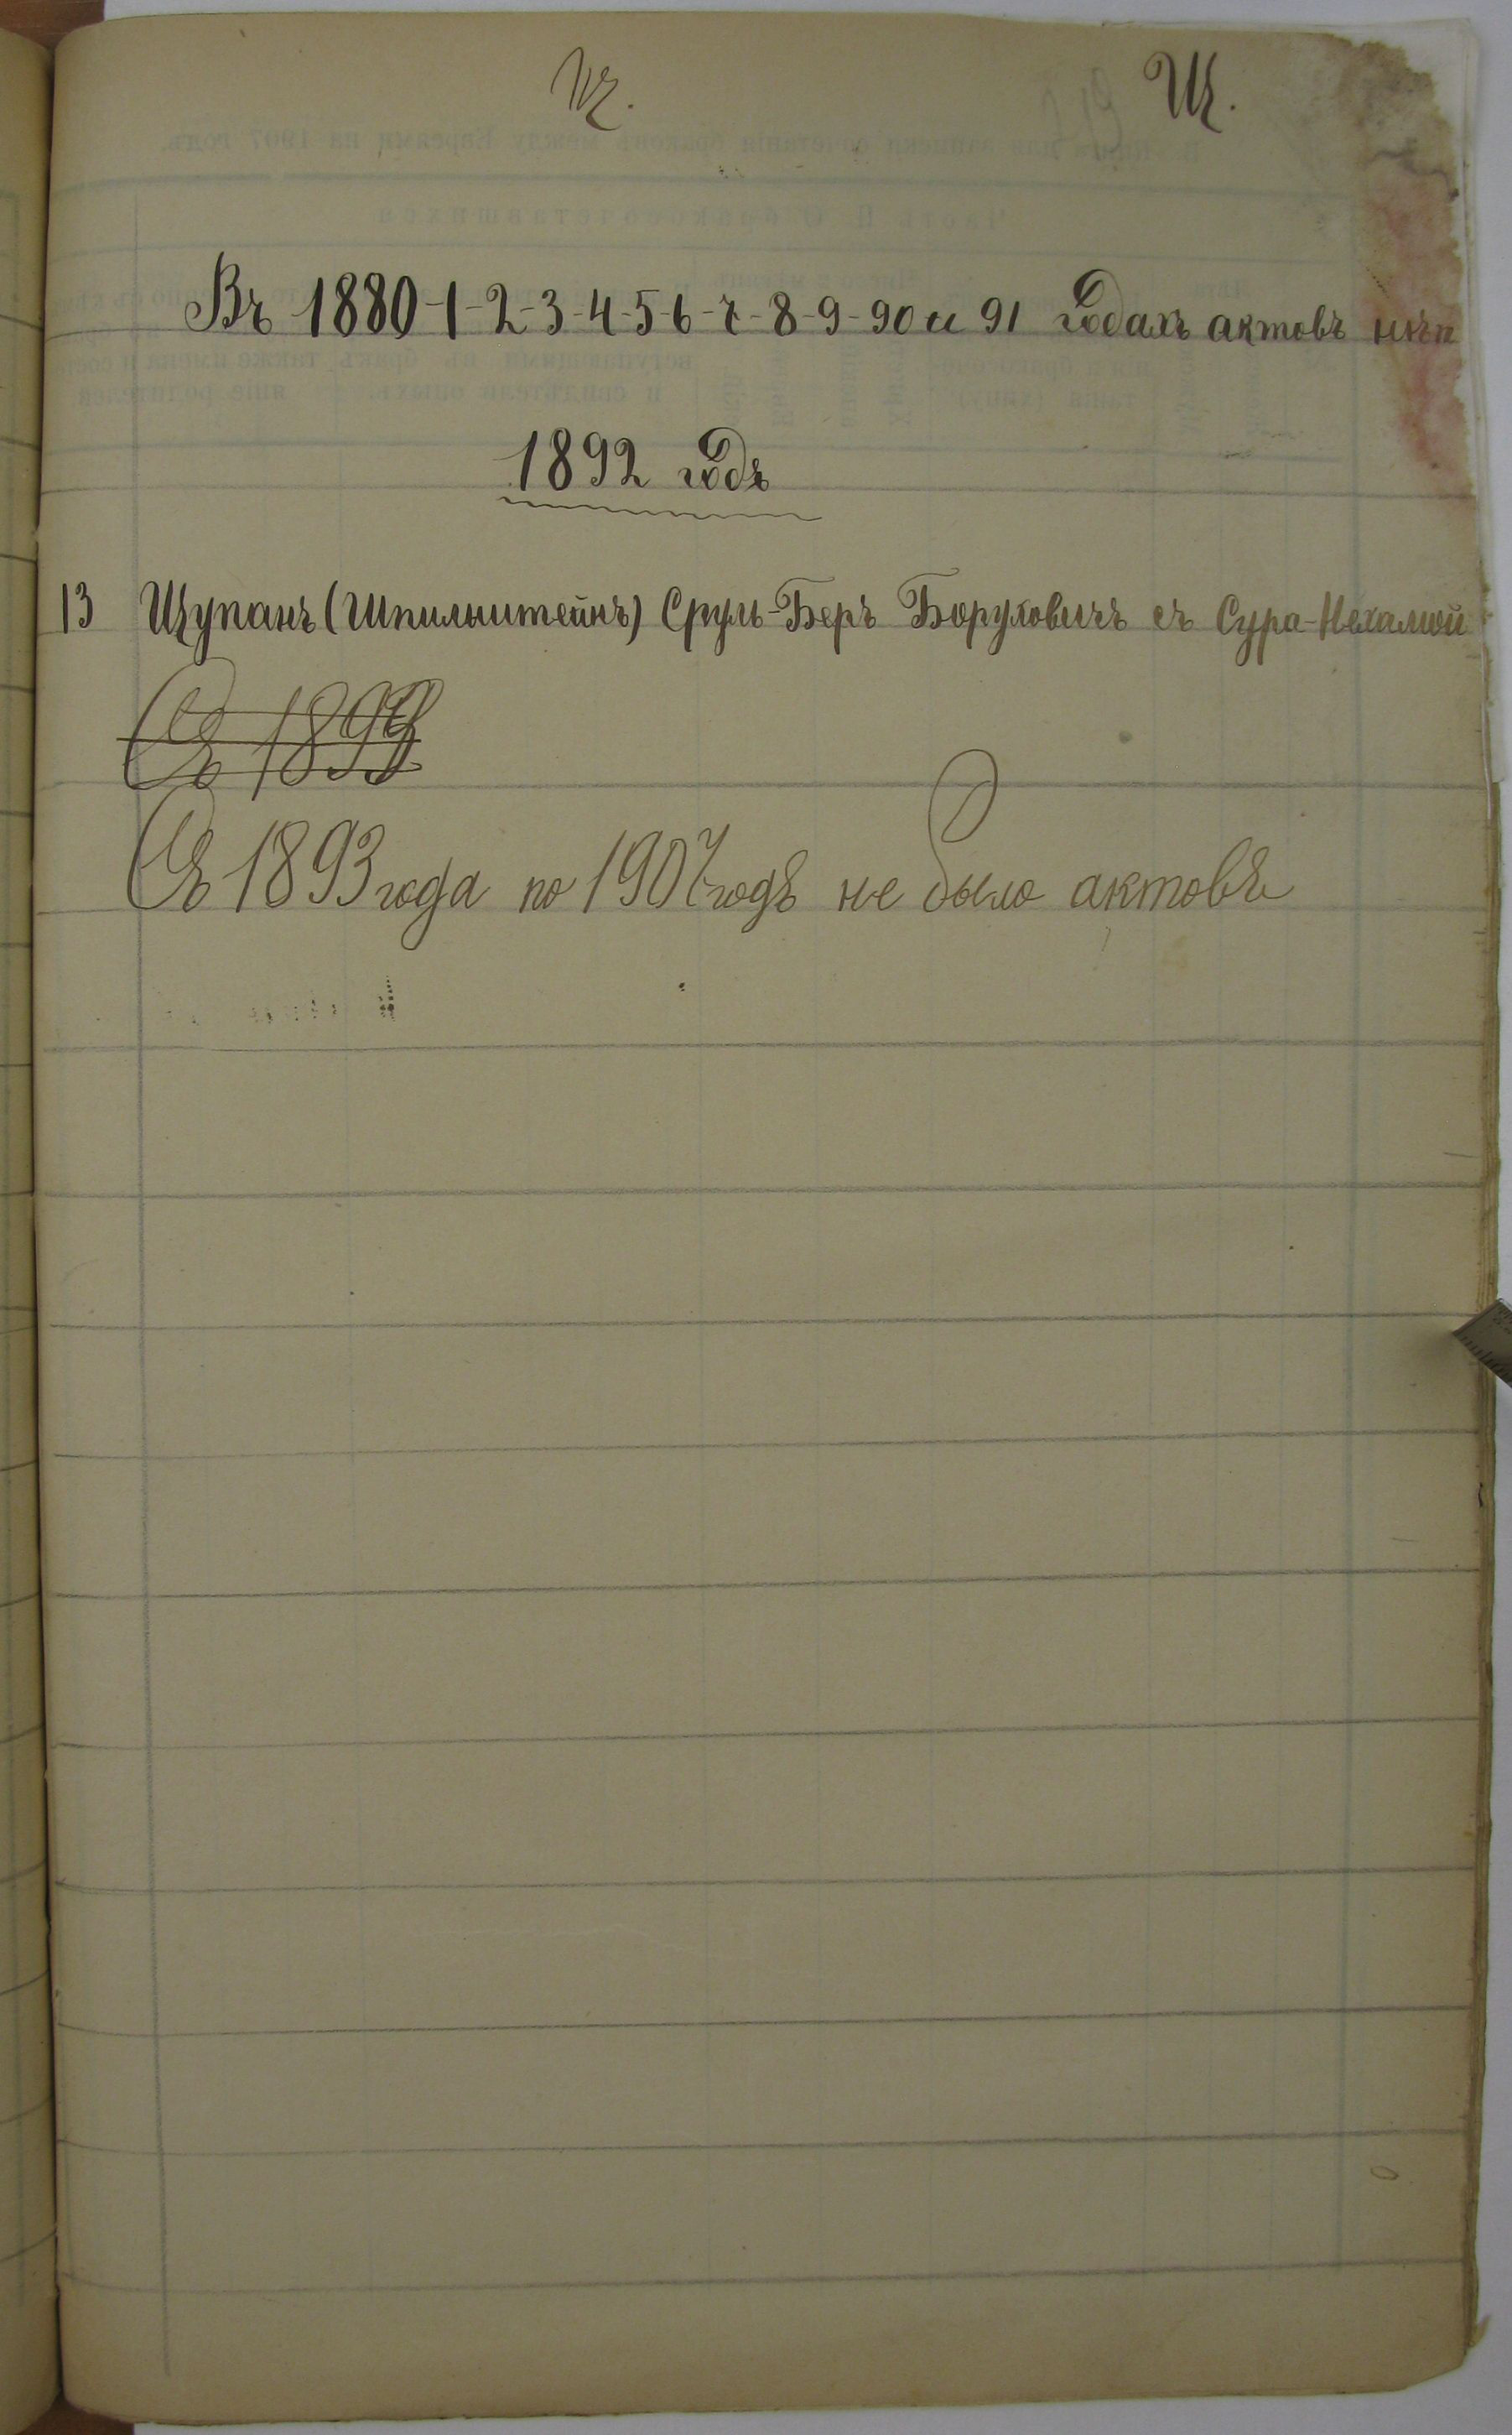 Щ. Щ.
Въ 1880-1-2-3-4-5-6-7-8-9-90 и 91 годахъ актовъ нѣт
1892 годъ
13 Щупакъ (Шпильштейнъ) Сруль-Беръ Боруховичъ съ Сура-Нехамой
Съ 1899
Съ 1893 года по 1907 годъ не было актовъ